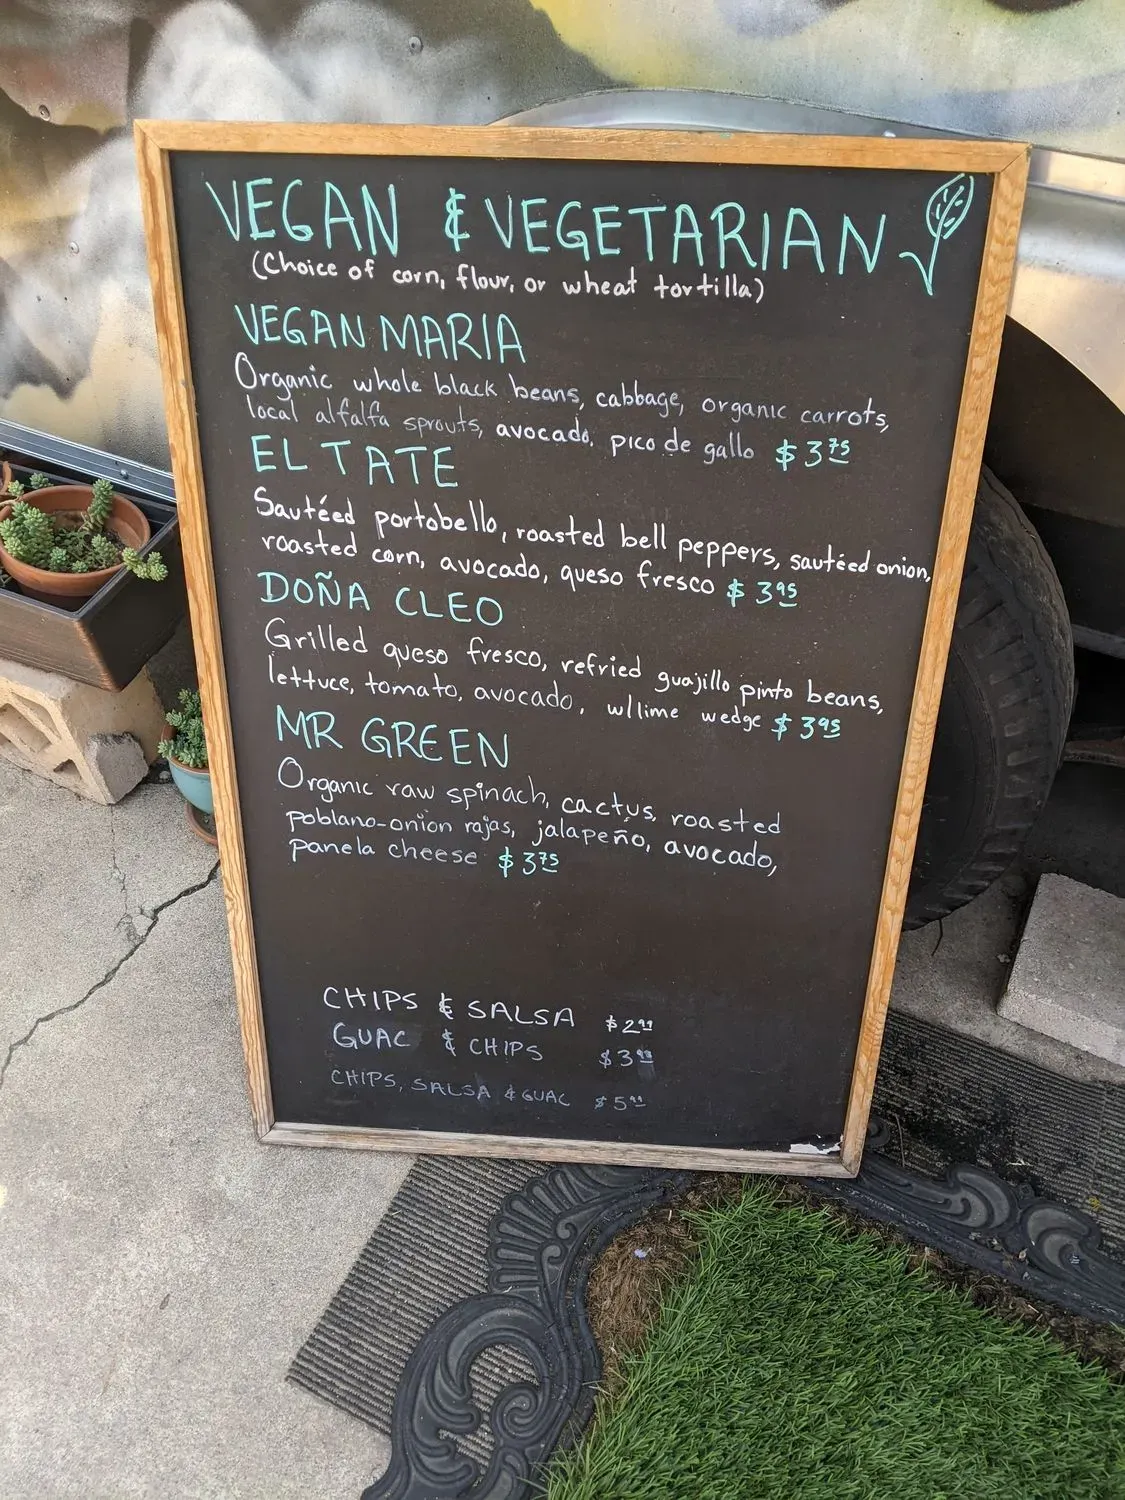 VEGAN & VEGETARIAN
(Choice of corn, flour, or wheat tortilla)
VEGAN MARIA
Organic whole black beans, cabbage, organic carrots,
local alfalfa sprouts, avocado, pico de gallo $3.75
EL TATE
Sautéed portobello, roasted bell peppers, sautéed onion,
roasted corn, avocado, queso fresco $3.95
DOÑA CLEO
Grilled queso fresco, refried guajillo pinto beans,
lettuce, tomato, avocado, w/lime wedge $3.95
MR GREEN
Organic raw spinach, cactus, roasted
poblano-onion rajas, jalapeño, avocado,
panela cheese $3.75
CHIPS & SALSA $2.99
GUAC & CHIPS $3.99
CHIPS, SALSA & GUAC $5.99